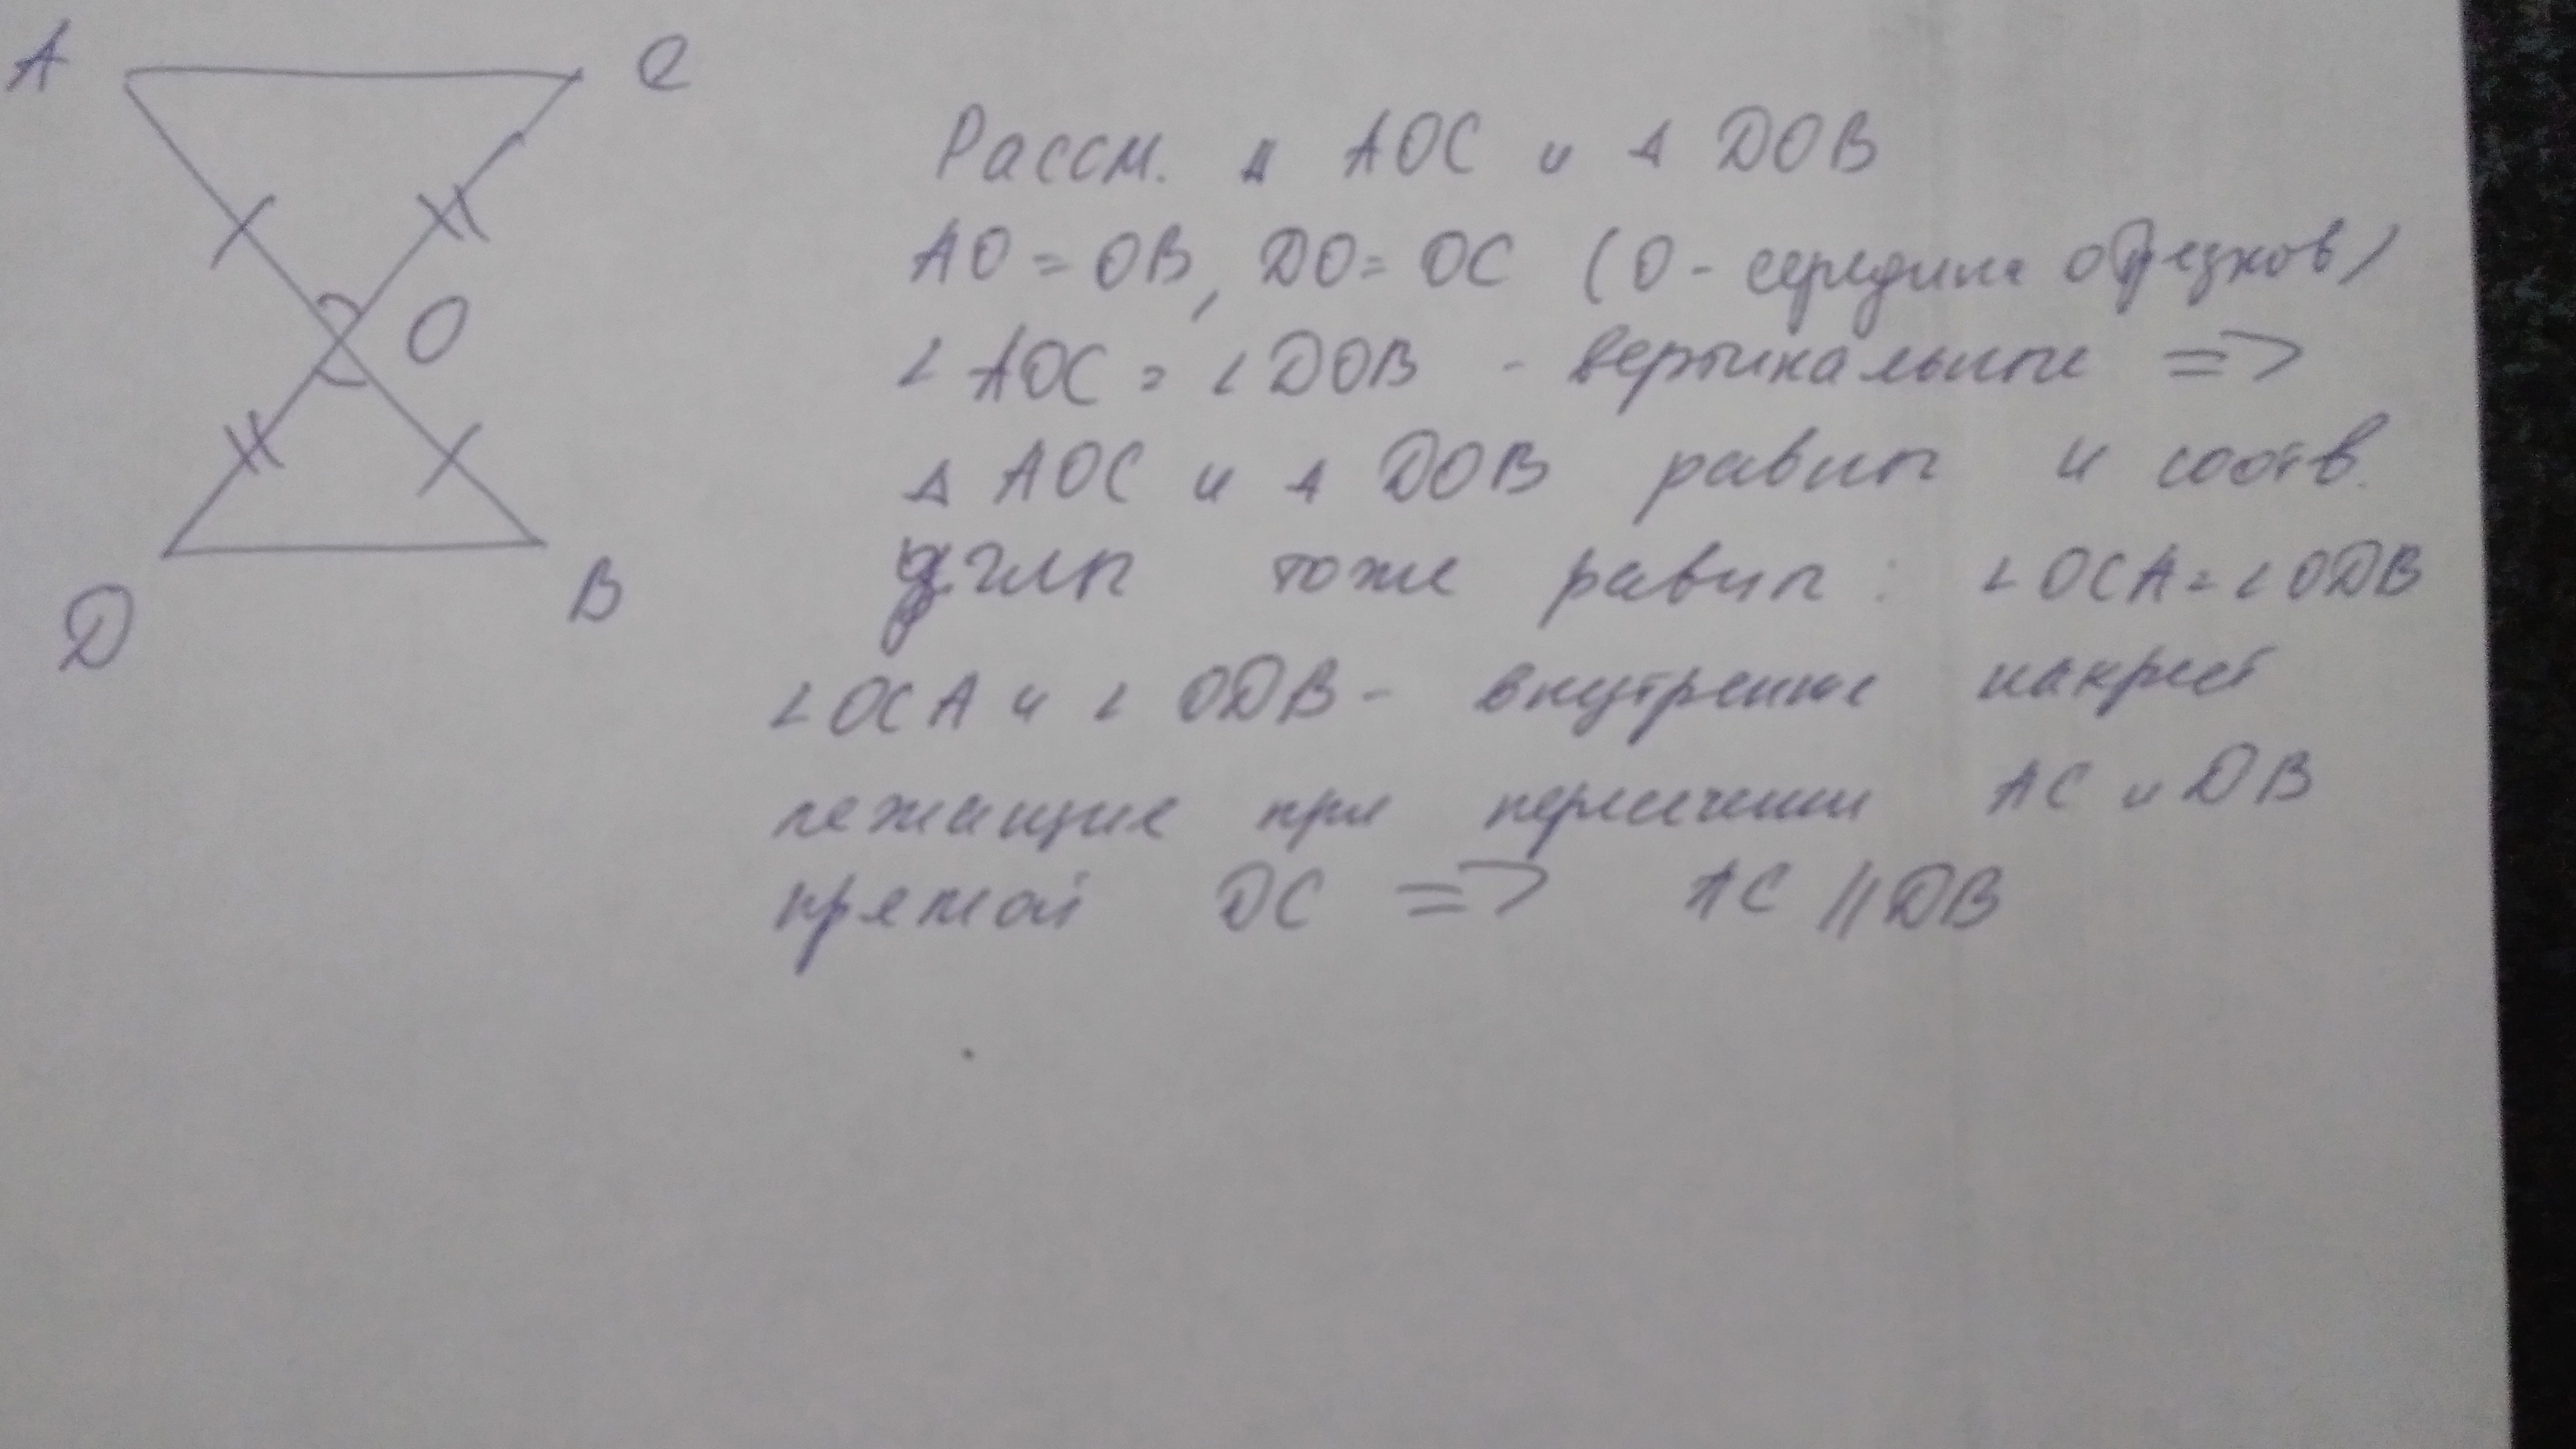 A C
Рассм. Δ AOC и Δ DOB
AO = OB, DO = OC (O - середина отрезков)
∠ AOC = ∠ DOB - вертикальные =>
O
Δ AOC и Δ DOB равны и соотв.
углы тоже равны : ∠ OCA = ∠ ODB
D B
∠ OCA и ∠ ODB - внутренние накрест
лежащие при пересечении AC и DB
прямой DC => AC || DB